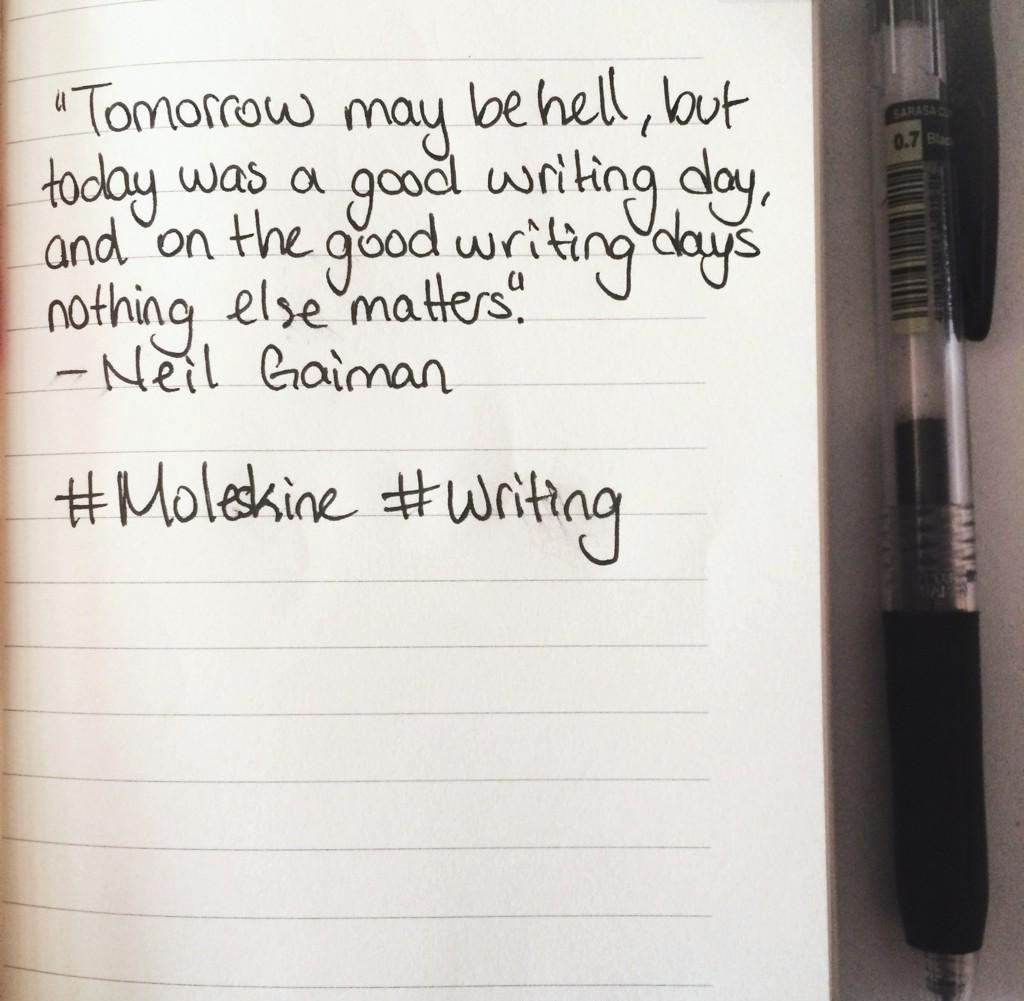 "Tomorrow may be hell, but
today was a good writing day,
and on the good writing days
nothing else matters."
- Neil Gaiman
#Moleskine #Writing
SARASA
0.7